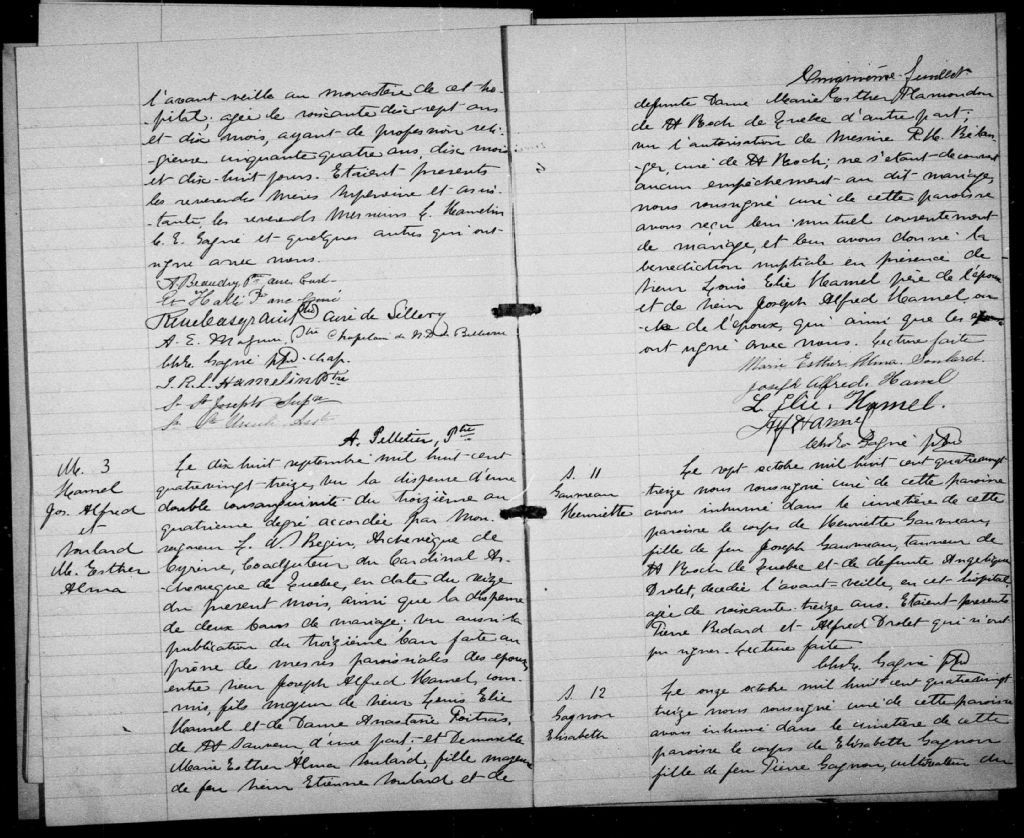 l'avant-veille au monastère de cet hô-
pital, agée de soixante dix sept ans
et dix mois, ayant de profession reli-
gieuse cinquante quatre ans, dix mois
et dix-huit jours. Etaient presents
les reverendes Mères Supérieure et assis-
tante, les reverends Messieurs L. Hamelin
C. E. Gagné et quelques autres qui ont
signé avec nous.
A. Beaudry Ptre anc. Curé
Et. Hallé Ptre anc. Curé
ptre curé de Sillery
A. E. Maguire, Ptre Chapelain de N. D. de Bellevue
Chs. E. Gagné ptre chap.
J. R. L. Hamelin Ptre
Sr. St Joseph Supre
Sr. Ste Ursule Asste
A. Pelletier, Ptre
M. 3
Hamel
Jos. Alfred
et
Soulard
M. Esther
Alma
Le dix huit septembre mil huit-cent
quatrevingt-treize, vu la dispense d'une
double consanguinité du troizième au
quatrième degré accordée par Mon-
seigneur L. N. Bégin, Archevêque de
Cyrène, Coadjuteur du Cardinal Ar-
chevêque de Quebec, en date du seize
du present mois, ainsi que la dispense
de deux bans de mariage; vu aussi la
publication du troizième ban faite au
prône de messes paroissiales des epoux
entre sieur Joseph Alfred Hamel, com-
mis, fils majeur de sieur Louis Elie
Hamel et de Dame Anastasie Poitras,
de St Sauveur, d'une part; et Demoiselle
Marie Esther Alma Soulard, fille majeure
de feu sieur Etienne Soulard et de
Cinquième feuillet
defunte Dame Marie Esther Hamondon
de St Roch de Quebec d'autre part;
vu l'autorisation de Messire R. H. Bélan-
ger, curé de St Roch; ne s'etant decouvert
aucun empêchement au dit mariage,
nous soussigné curé de cette paroisse
avons reçu leur mutuel consentement
de mariage, et leur avons donné la
benediction nuptiale en presence de
sieur Louis Elie Hamel père de l'époux
et de sieur Joseph Alfred Hamel, on-
cle de l'époux, qui ainsi que les epoux
ont signé avec nous. Lecture faite
Marie Esther Alma Soulard.
Joseph Alfred Hamel
L. Elie. Hamel.
Hamel
Chs. E. Gagné ptre
S. 11
Gauvreau
Henriette
Le sept octobre mil huit cent quatrevingt
treize nous soussigné curé de cette paroisse
avons inhumé dans le cimetière de cette
paroisse le corps de Henriette Gauvreau,
fille de feu Joseph Gauvreau, tanneur de
St Roch de Quebec et de defunte Angelique
Drolet, decedée l'avant-veille en cet hôpital,
agée de soixante-treize ans. Etaient presents
Pierre Bedard et Alfred Drolet qui n'ont
pu signer. Lecture faite
Chs. E. Gagné ptre
S. 12
Gagnon
Elisabeth
Le onze octobre mil huit cent quatrevingt
treize nous soussigné curé de cette paroisse
avons inhumé dans le cimetière de cette
paroisse le corps de Elisabeth Gagnon
fille de feu Pierre Gagnon, cultivateur du